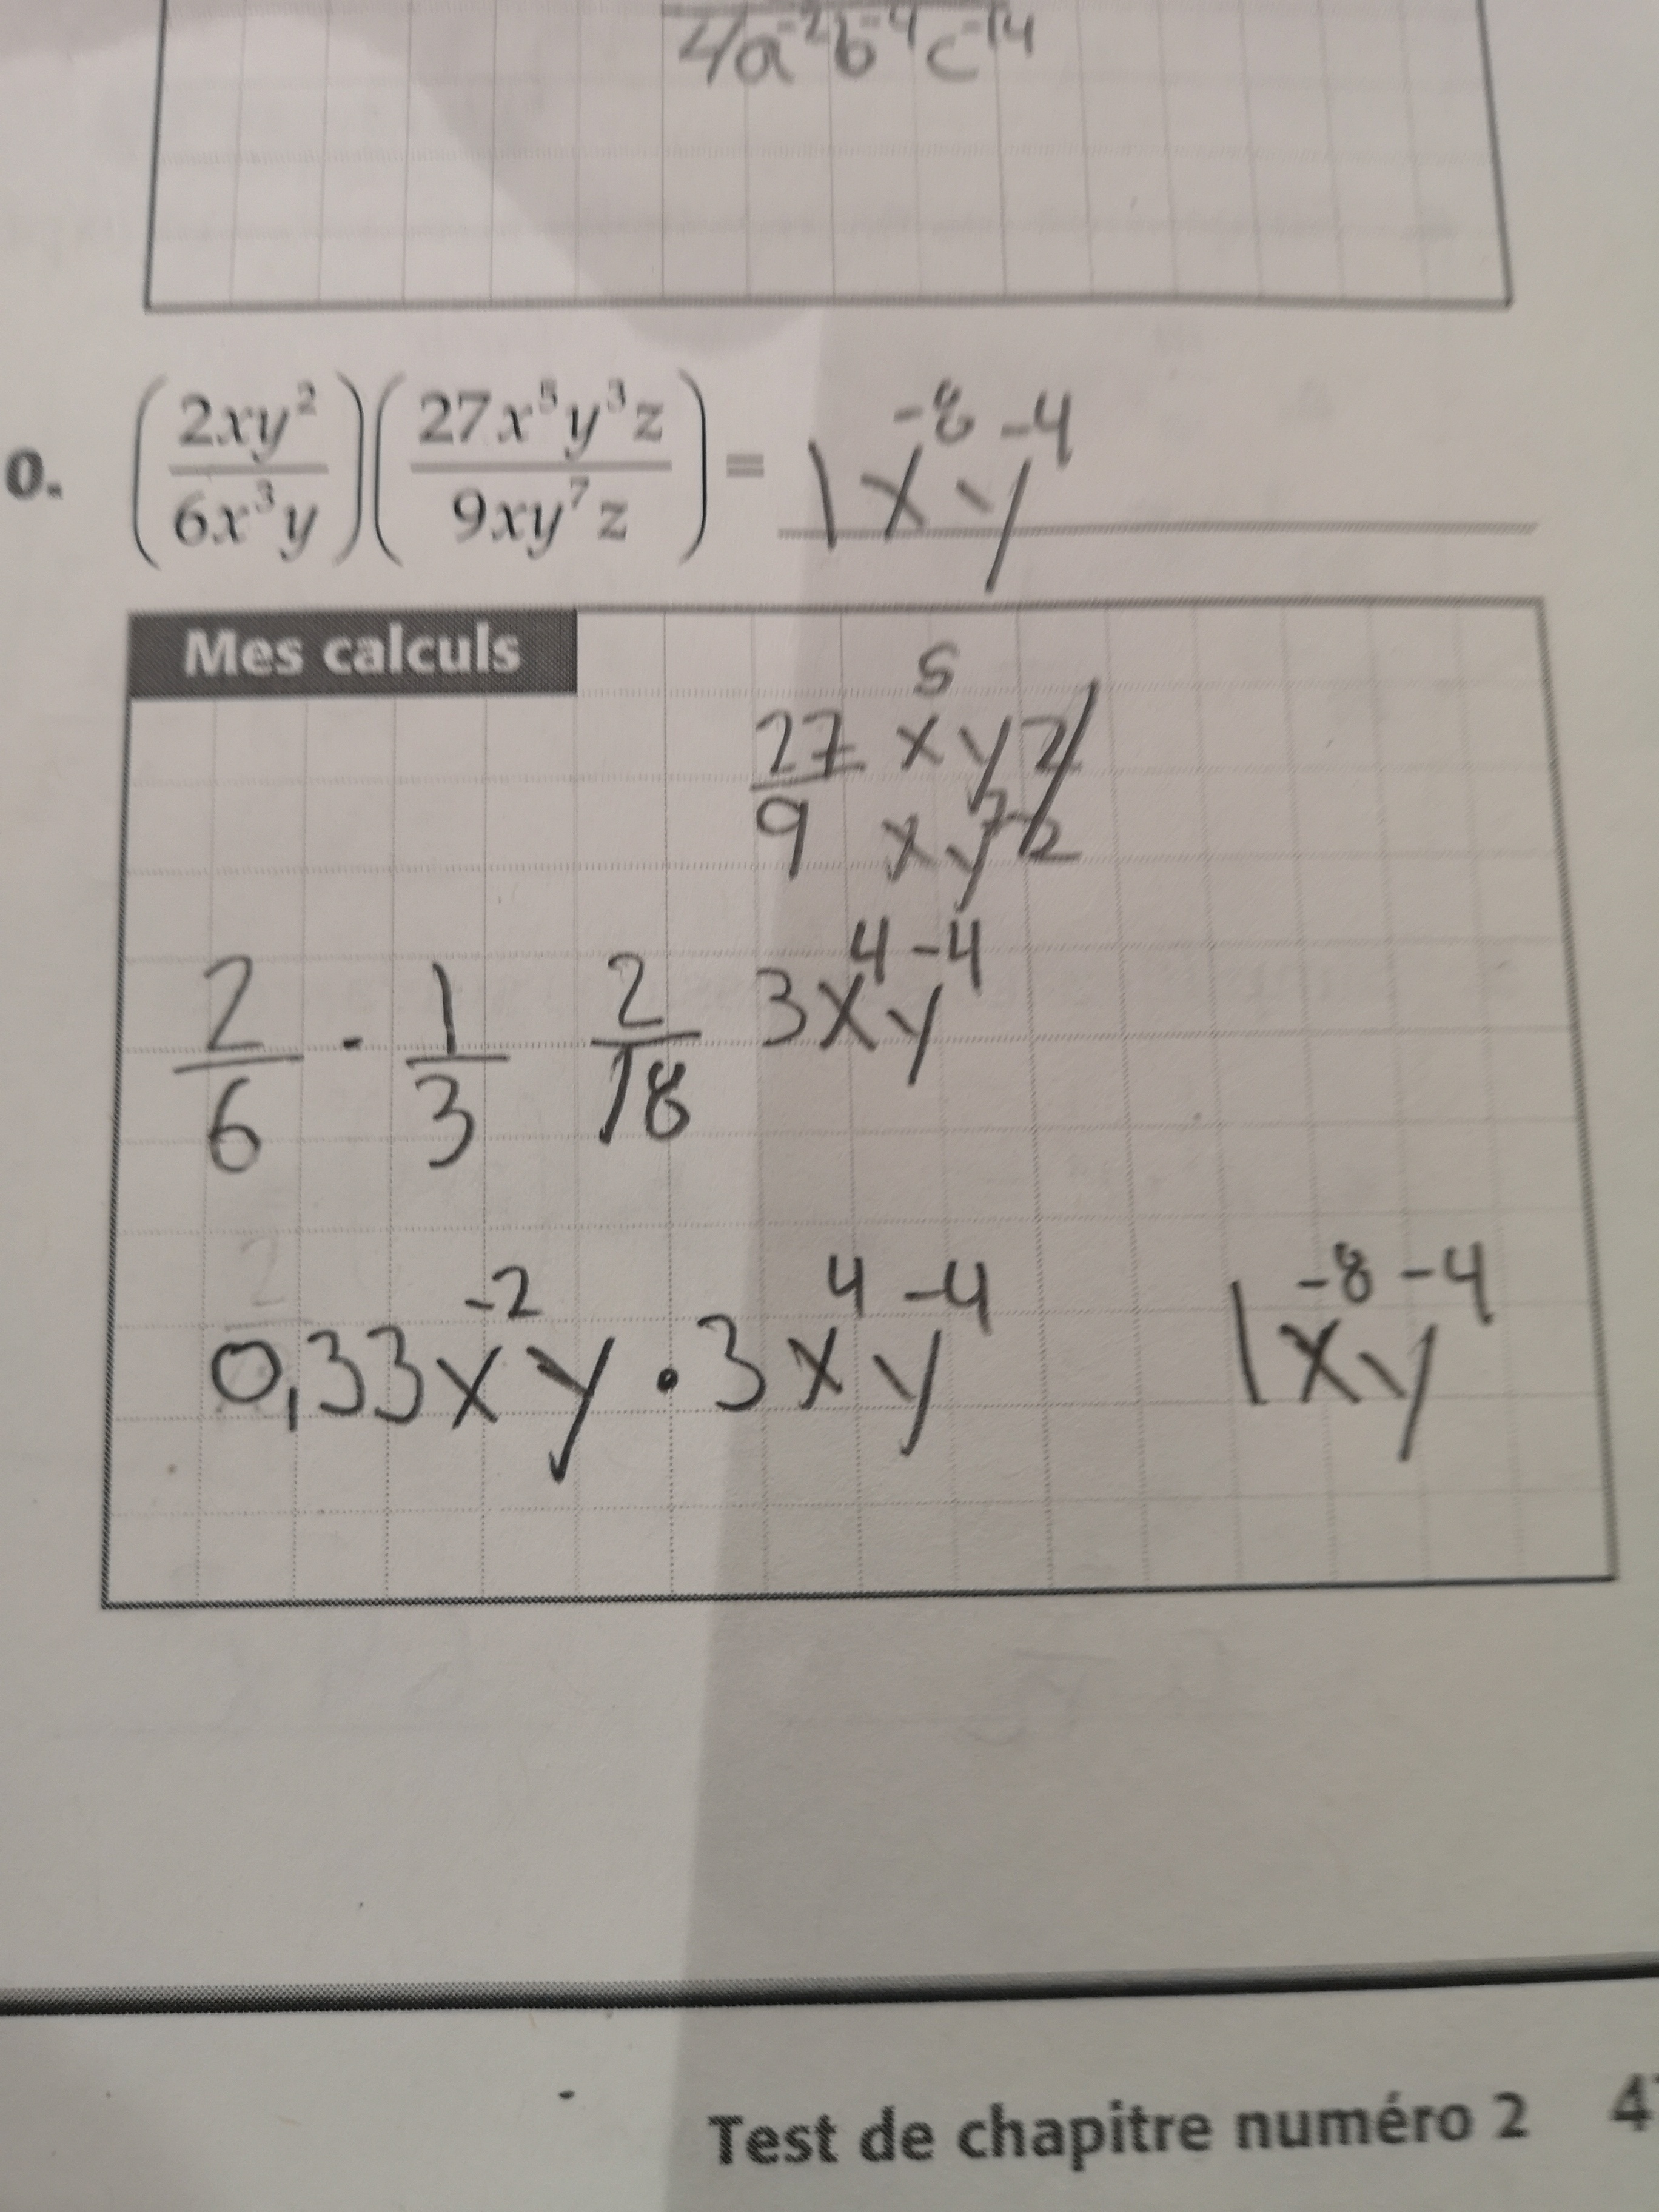 4a⁻²b⁻⁴c⁻¹⁴
0. (2xy²/6x³y)(27x⁵y³z/9xy⁷z) = 1x⁻⁸y⁻⁴
Mes calculs
27x⁵yz/9xy⁷z
2/6 · 1/3 2/18 3x⁴y⁻⁴
0,33x⁻²y · 3x⁴y⁻⁴ 1x⁻⁸y⁻⁴
Test de chapitre numéro 2 4